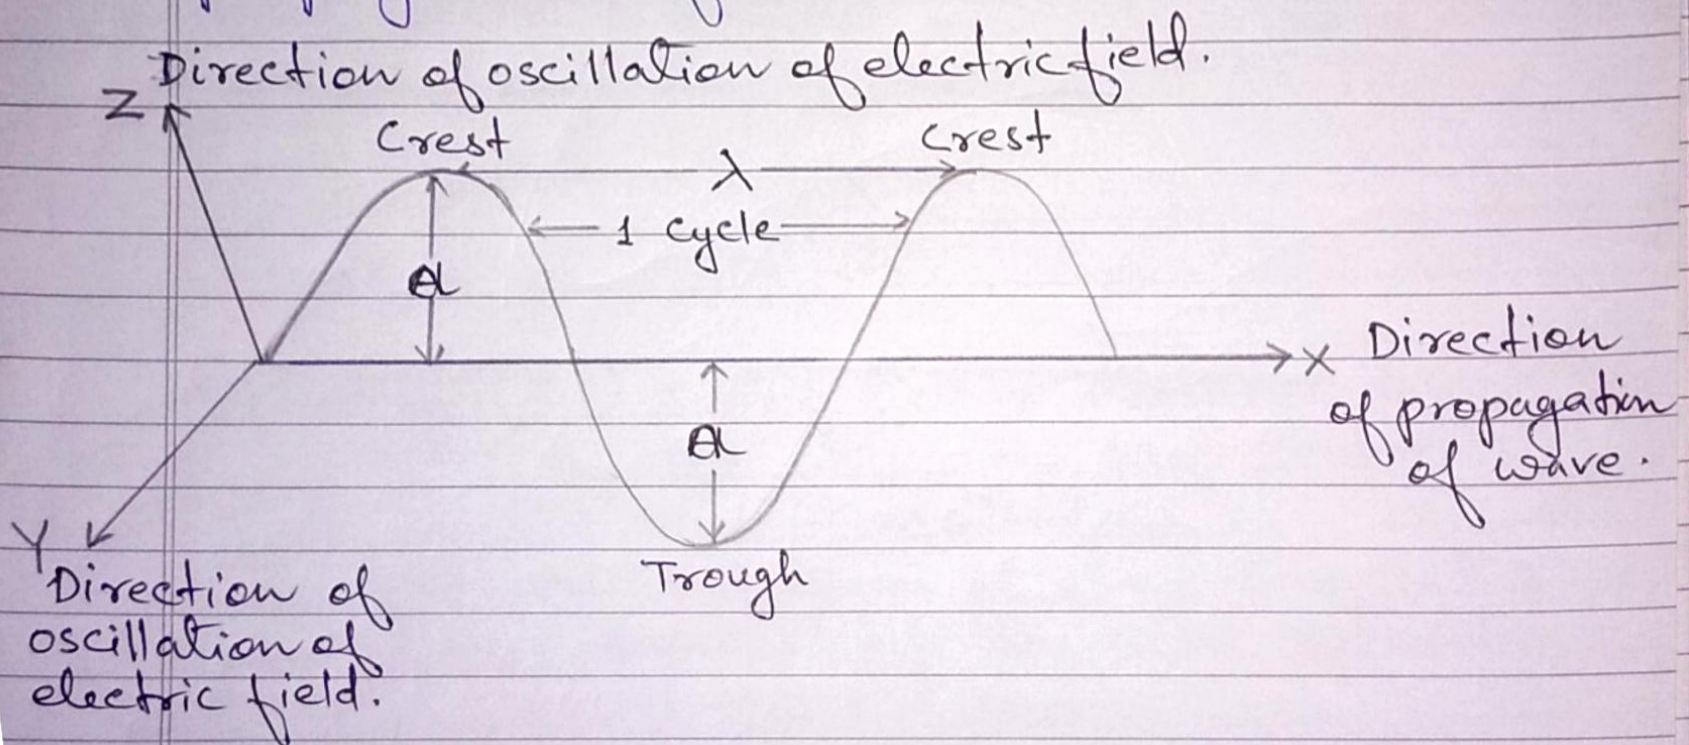 Direction of oscillation of electric field.
Z
Crest
Crest
λ
1 cycle
a
X Direction
of propagation
of wave.
a
Y
Trough
Direction of
oscillation of
electric field.